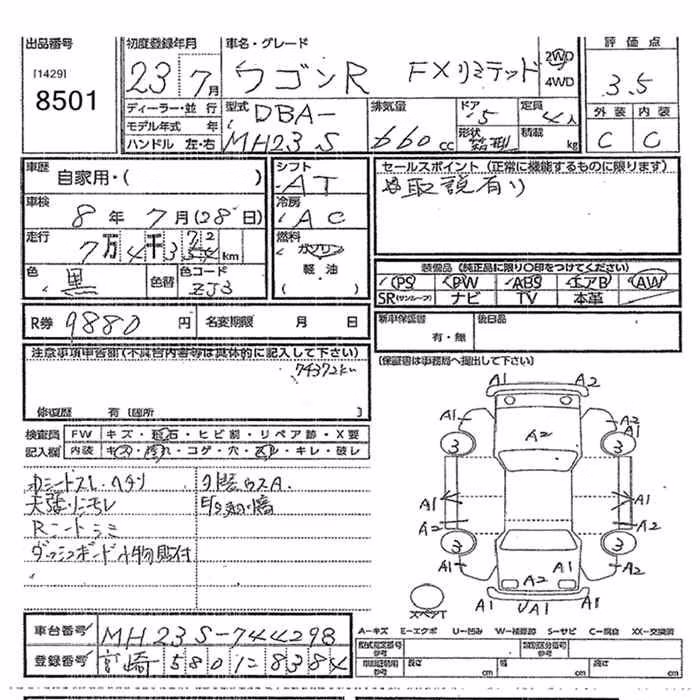 出品番号 初度登録年月 車名・グレード 評価点
[1429] 8501
23年7月 ワゴンR FXリミテッド 2WD 4WD 3.5
ディーラー・並行 型式 DBA- 排気量 ドア 5 定員 4人 外装 内装
モデル年式 年 形状 積載 kg
ハンドル 左・右 MH23S 660cc C C
車歴 自家用・( ) シフト AT セールスポイント(正常に機能するものに限ります)
取説有り
車検 8年7月(28日) 冷房 AC
走行 7万4千372km 燃料 ガソリン
軽・油
色 黒 色替 色コード ZJ3
装備品(純正品に限り〇印をつけてください)
PS PW ABS エアB AW
SR(サンルーフ) ナビ TV 本革
R券 9880円 名変期限 月 日
新車保証書 有・無 後日品
注意事項申告欄(不具合内容等は具体的に記入して下さい)
74372km
(保証書は事務局へ提出して下さい)
修復歴 有(箇所 )
検査員 FW キズ・飛石・ヒビ割・リペア跡・X要
記入欄 内装 キズ・汚れ・コゲ・穴・スレ・キレ・破レ
天張
ダッシュボード小物貼付
A1 A2
A1 A1
3 A2 3
A1 A1
A2 A2
3 3
A1 A2 A1
A1 A1 A2
スペア
車台番号 MH23S-744298
登録番号 宮崎 580 8384
A-キズ E-エクボ U-凹み W-補修跡 S-サビ C-腐食 XX-交換済
型式指定番号 参考 類別区分番号 参考
長さ cm 幅 cm 高さ cm